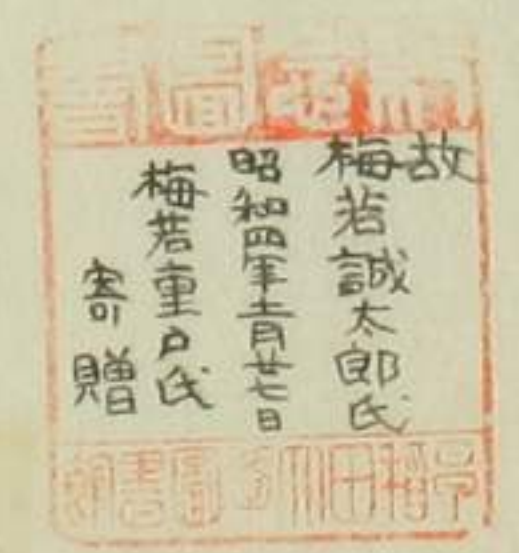 圖書
故
梅若誠太郎氏
昭和四年十二月廿七日
梅若重戸氏
寄贈
早稻田大學圖書館